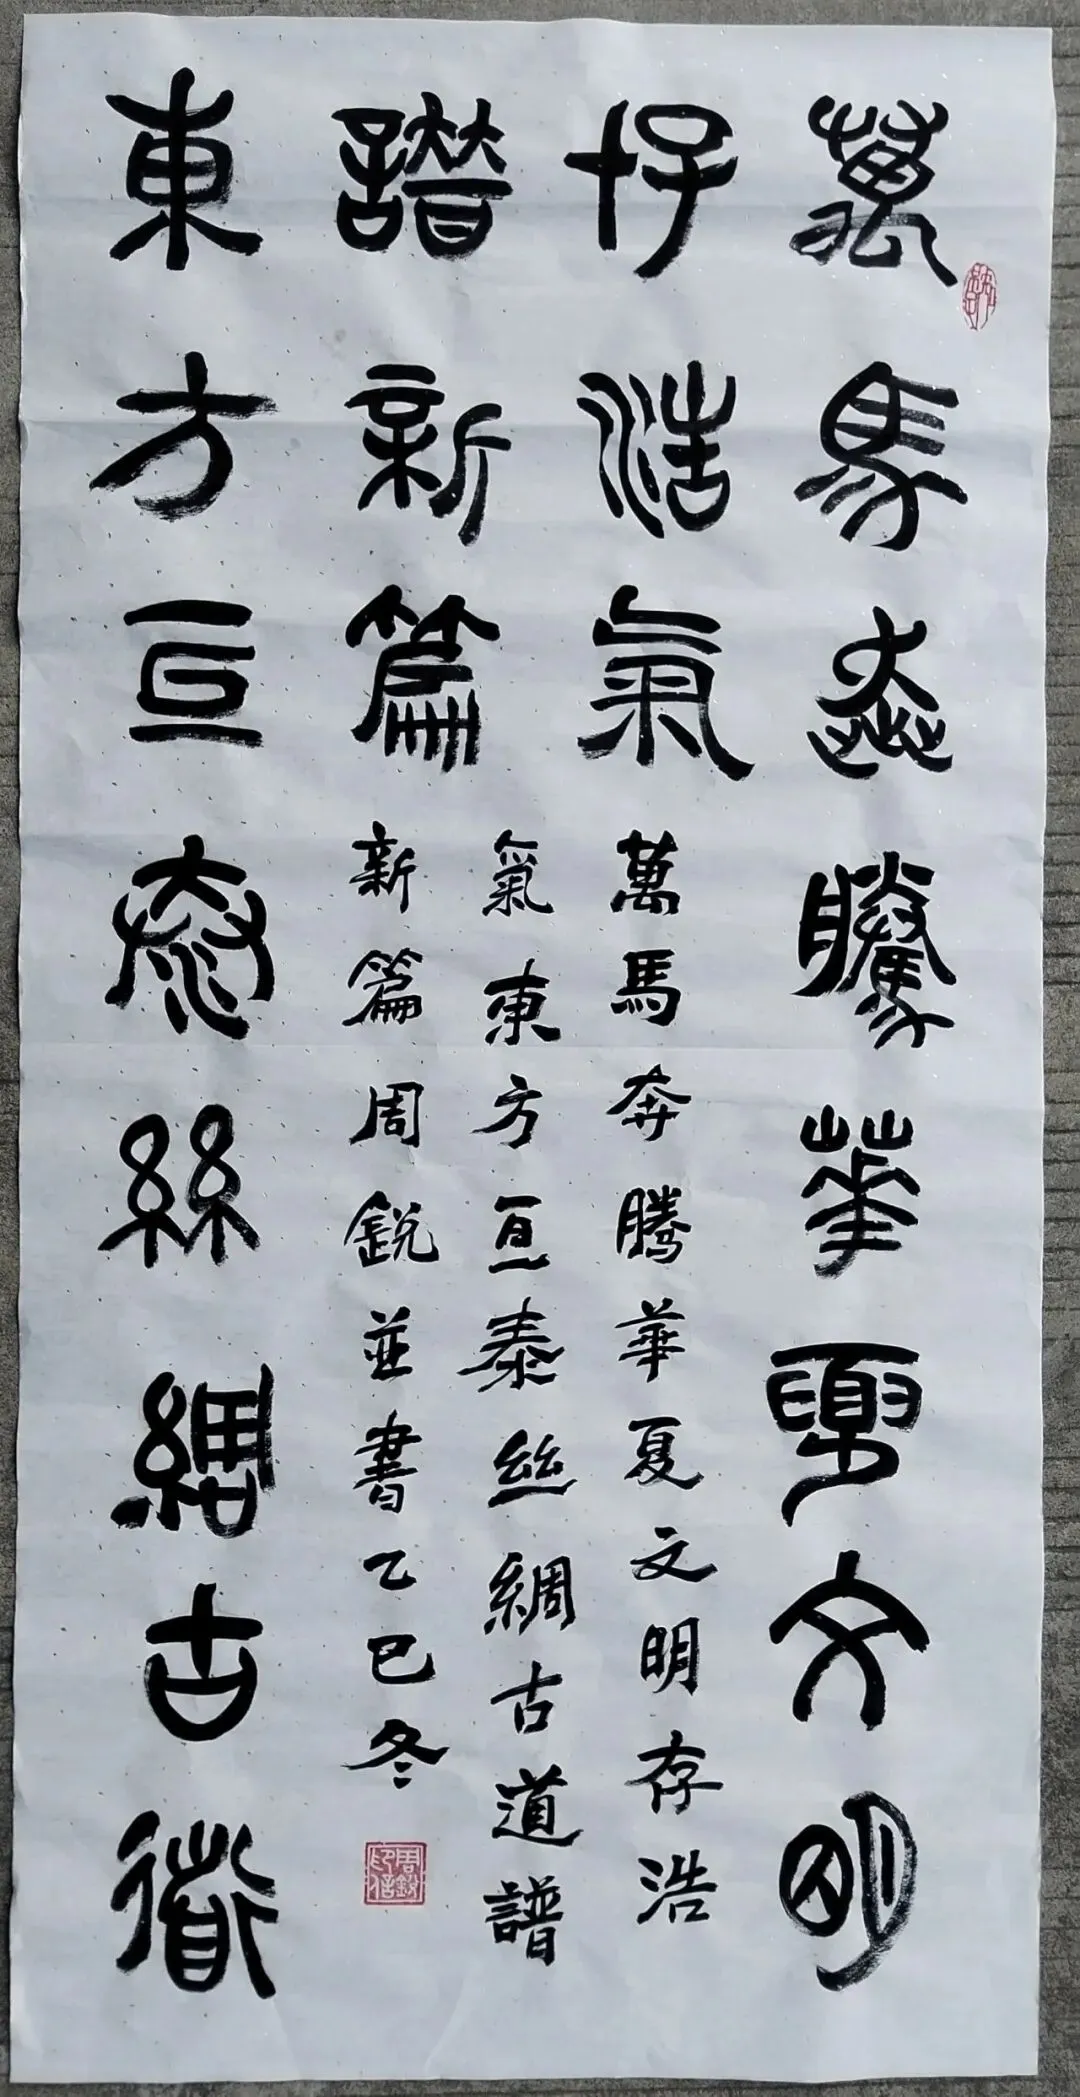 萬馬奔騰華夏文明
存浩氣
東方亘泰絲綢古道
譜新篇
萬馬奔騰華夏文明存浩
氣東方亘泰絲綢古道譜
新篇周銳並書乙巳冬
周銳印信